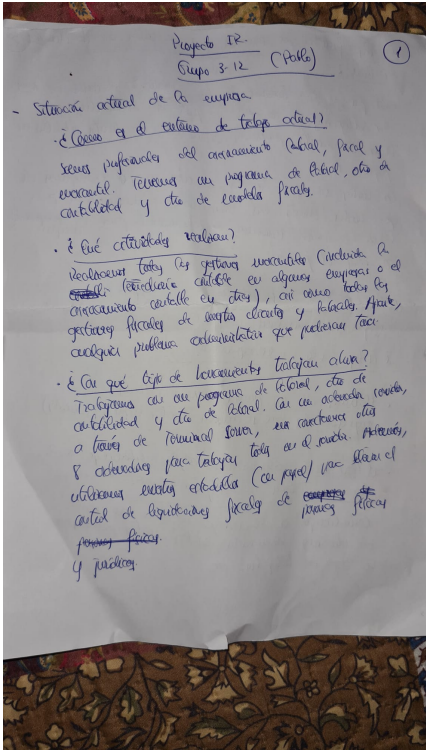 Proyecto IR.
Grupo 3-12 (Pablo)
1
- Situación actual de la empresa
· ¿Cómo es el entorno de trabajo actual?
Somos profesionales del asesoramiento laboral, fiscal y
mercantil. Tenemos un programa de laboral, otro de
contabilidad y otro de modelos fiscales.
· ¿Qué actividades realizan?
Realizamos todas las gestiones mercantiles (incluida la
contable en algunas empresas o el
asesoramiento contable en otras), así como todas las
gestiones fiscales de nuestros clientes y laborales. Aparte,
cualquier problema administrativo que pudieran
· ¿Con qué tipo de herramientas trabajan ahora?
Trabajamos con un programa de laboral, otro de
contabilidad y otro de laboral. Con un ordenador servidor,
a través de Terminal Server, nos conectamos otros
8 ordenadores para trabajar todos en el servidor. Además,
utilizamos nuestros estadillos (con papel) para llevar el
control de liquidaciones fiscales de personas físicas
y jurídicas.